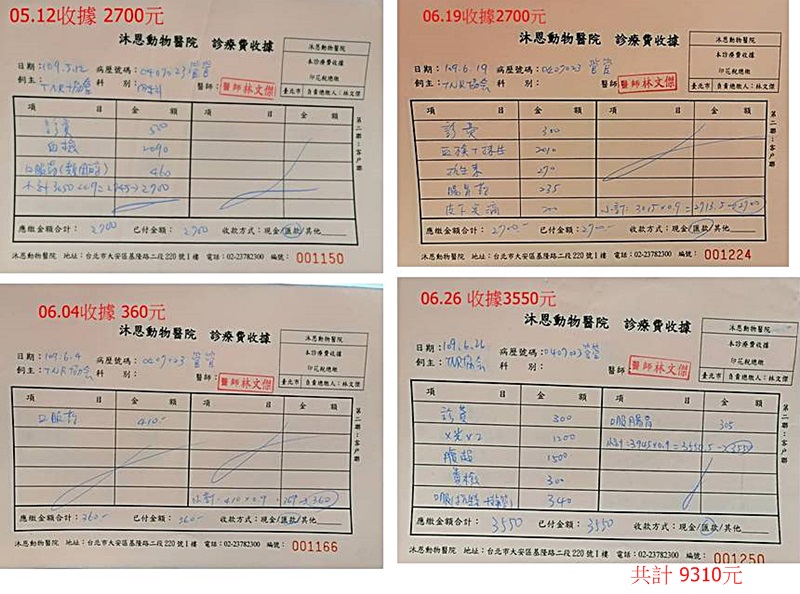 05.12收據 2700元
沐恩動物醫院 診療費收據
沐恩動物醫院
本診療費收據
印花稅總繳
臺北市 負責總繳人：林文傑
日期：109.5.12 病歷號碼：0407023 營營
飼主：TNR協會 科 別： 醫師：醫師林文傑
項 目 金 額 項 目 金 額
診費
血檢 2090
460
第二聯：客戶聯
應繳金額合計：2700 已付金額：2700 收款方式：現金/匯款/其他
沐恩動物醫院 地址：台北市大安區基隆路二段220號1樓 電話：02-23782300 編號：001150
06.19收據2700元
沐恩動物醫院 診療費收據
沐恩動物醫院
本診療費收據
印花稅總繳
臺北市 負責總繳人：林文傑
日期：109.6.19 病歷號碼：0407023 營營
飼主：TNR協會 科 別： 醫師：醫師林文傑
項 目 金 額 項 目 金 額
診費 300
2010
抗生素 270
腸胃藥 235
皮下 200 小計：3015×0.9=2713.5→2700
第二聯：客戶聯
應繳金額合計：2700- 已付金額：2700- 收款方式：現金/匯款/其他
沐恩動物醫院 地址：台北市大安區基隆路二段220號1樓 電話：02-23782300 編號：001224
06.04收據 360元
沐恩動物醫院 診療費收據
沐恩動物醫院
本診療費收據
印花稅總繳
臺北市 負責總繳人：林文傑
日期：109.6.4 病歷號碼：0407023 營營
飼主：TNR協會 科 別： 醫師：醫師林文傑
項 目 金 額 項 目 金 額
口服藥 410-
小計：410×0.9=369→360
第二聯：客戶聯
應繳金額合計：360- 已付金額：360- 收款方式：現金/匯款/其他
沐恩動物醫院 地址：台北市大安區基隆路二段220號1樓 電話：02-23782300 編號：001166
06.26 收據3550元
沐恩動物醫院 診療費收據
沐恩動物醫院
本診療費收據
印花稅總繳
臺北市 負責總繳人：林文傑
日期：109.6.26 病歷號碼：0407023 營營
飼主：TNR協會 科 別： 醫師：醫師林文傑
項 目 金 額 項 目 金 額
診費 300 口服腸胃 305
X光×2 1200 小計=3945×0.9=3550.5→3550
腹超 1500
糞檢 300
340
第二聯：客戶聯
應繳金額合計：3550 已付金額：3550 收款方式：現金/匯款/其他
沐恩動物醫院 地址：台北市大安區基隆路二段220號1樓 電話：02-23782300 編號：001250
共計 9310元